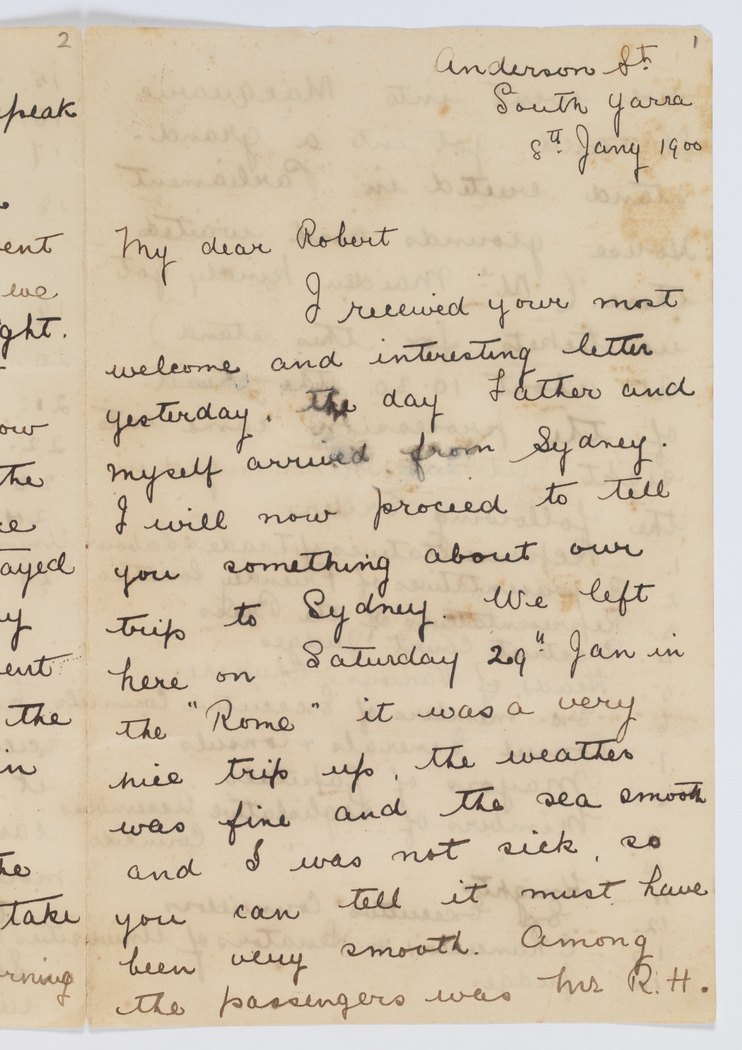 2
peak
ent
we
ght.
ow
the
ayed
ent
the
in
the
take
rning
1
Anderson St.
South Yarra
8th Jany 1900
My dear Robert
I received your most
welcome and interesting letter
yesterday. the day Father and
myself arrived from Sydney.
I will now proceed to tell
you something about our
trip to Sydney. We left
here on Saturday 29th Jan in
the "Rome" it was a very
nice trip up, the weather
was fine and the sea smooth
and I was not sick, so
you can tell it must have
been very smooth. Among
the passengers was Mr R.H.